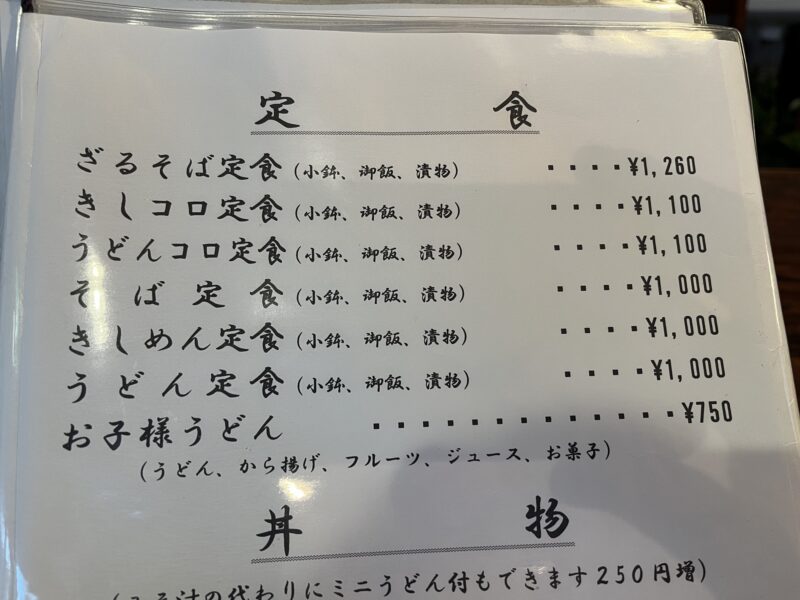 定食
ざるそば定食(小鉢、御飯、漬物)････¥1,260
きしコロ定食(小鉢、御飯、漬物)････¥1,100
うどんコロ定食(小鉢、御飯、漬物)････¥1,100
そば定食(小鉢、御飯、漬物)････¥1,000
きしめん定食(小鉢、御飯、漬物)････¥1,000
うどん定食(小鉢、御飯、漬物)････¥1,000
お子様うどん･････････････¥750
(うどん、から揚げ、フルーツ、ジュース、お菓子)
丼物
(みそ汁の代わりにミニうどん付もできます250円増)